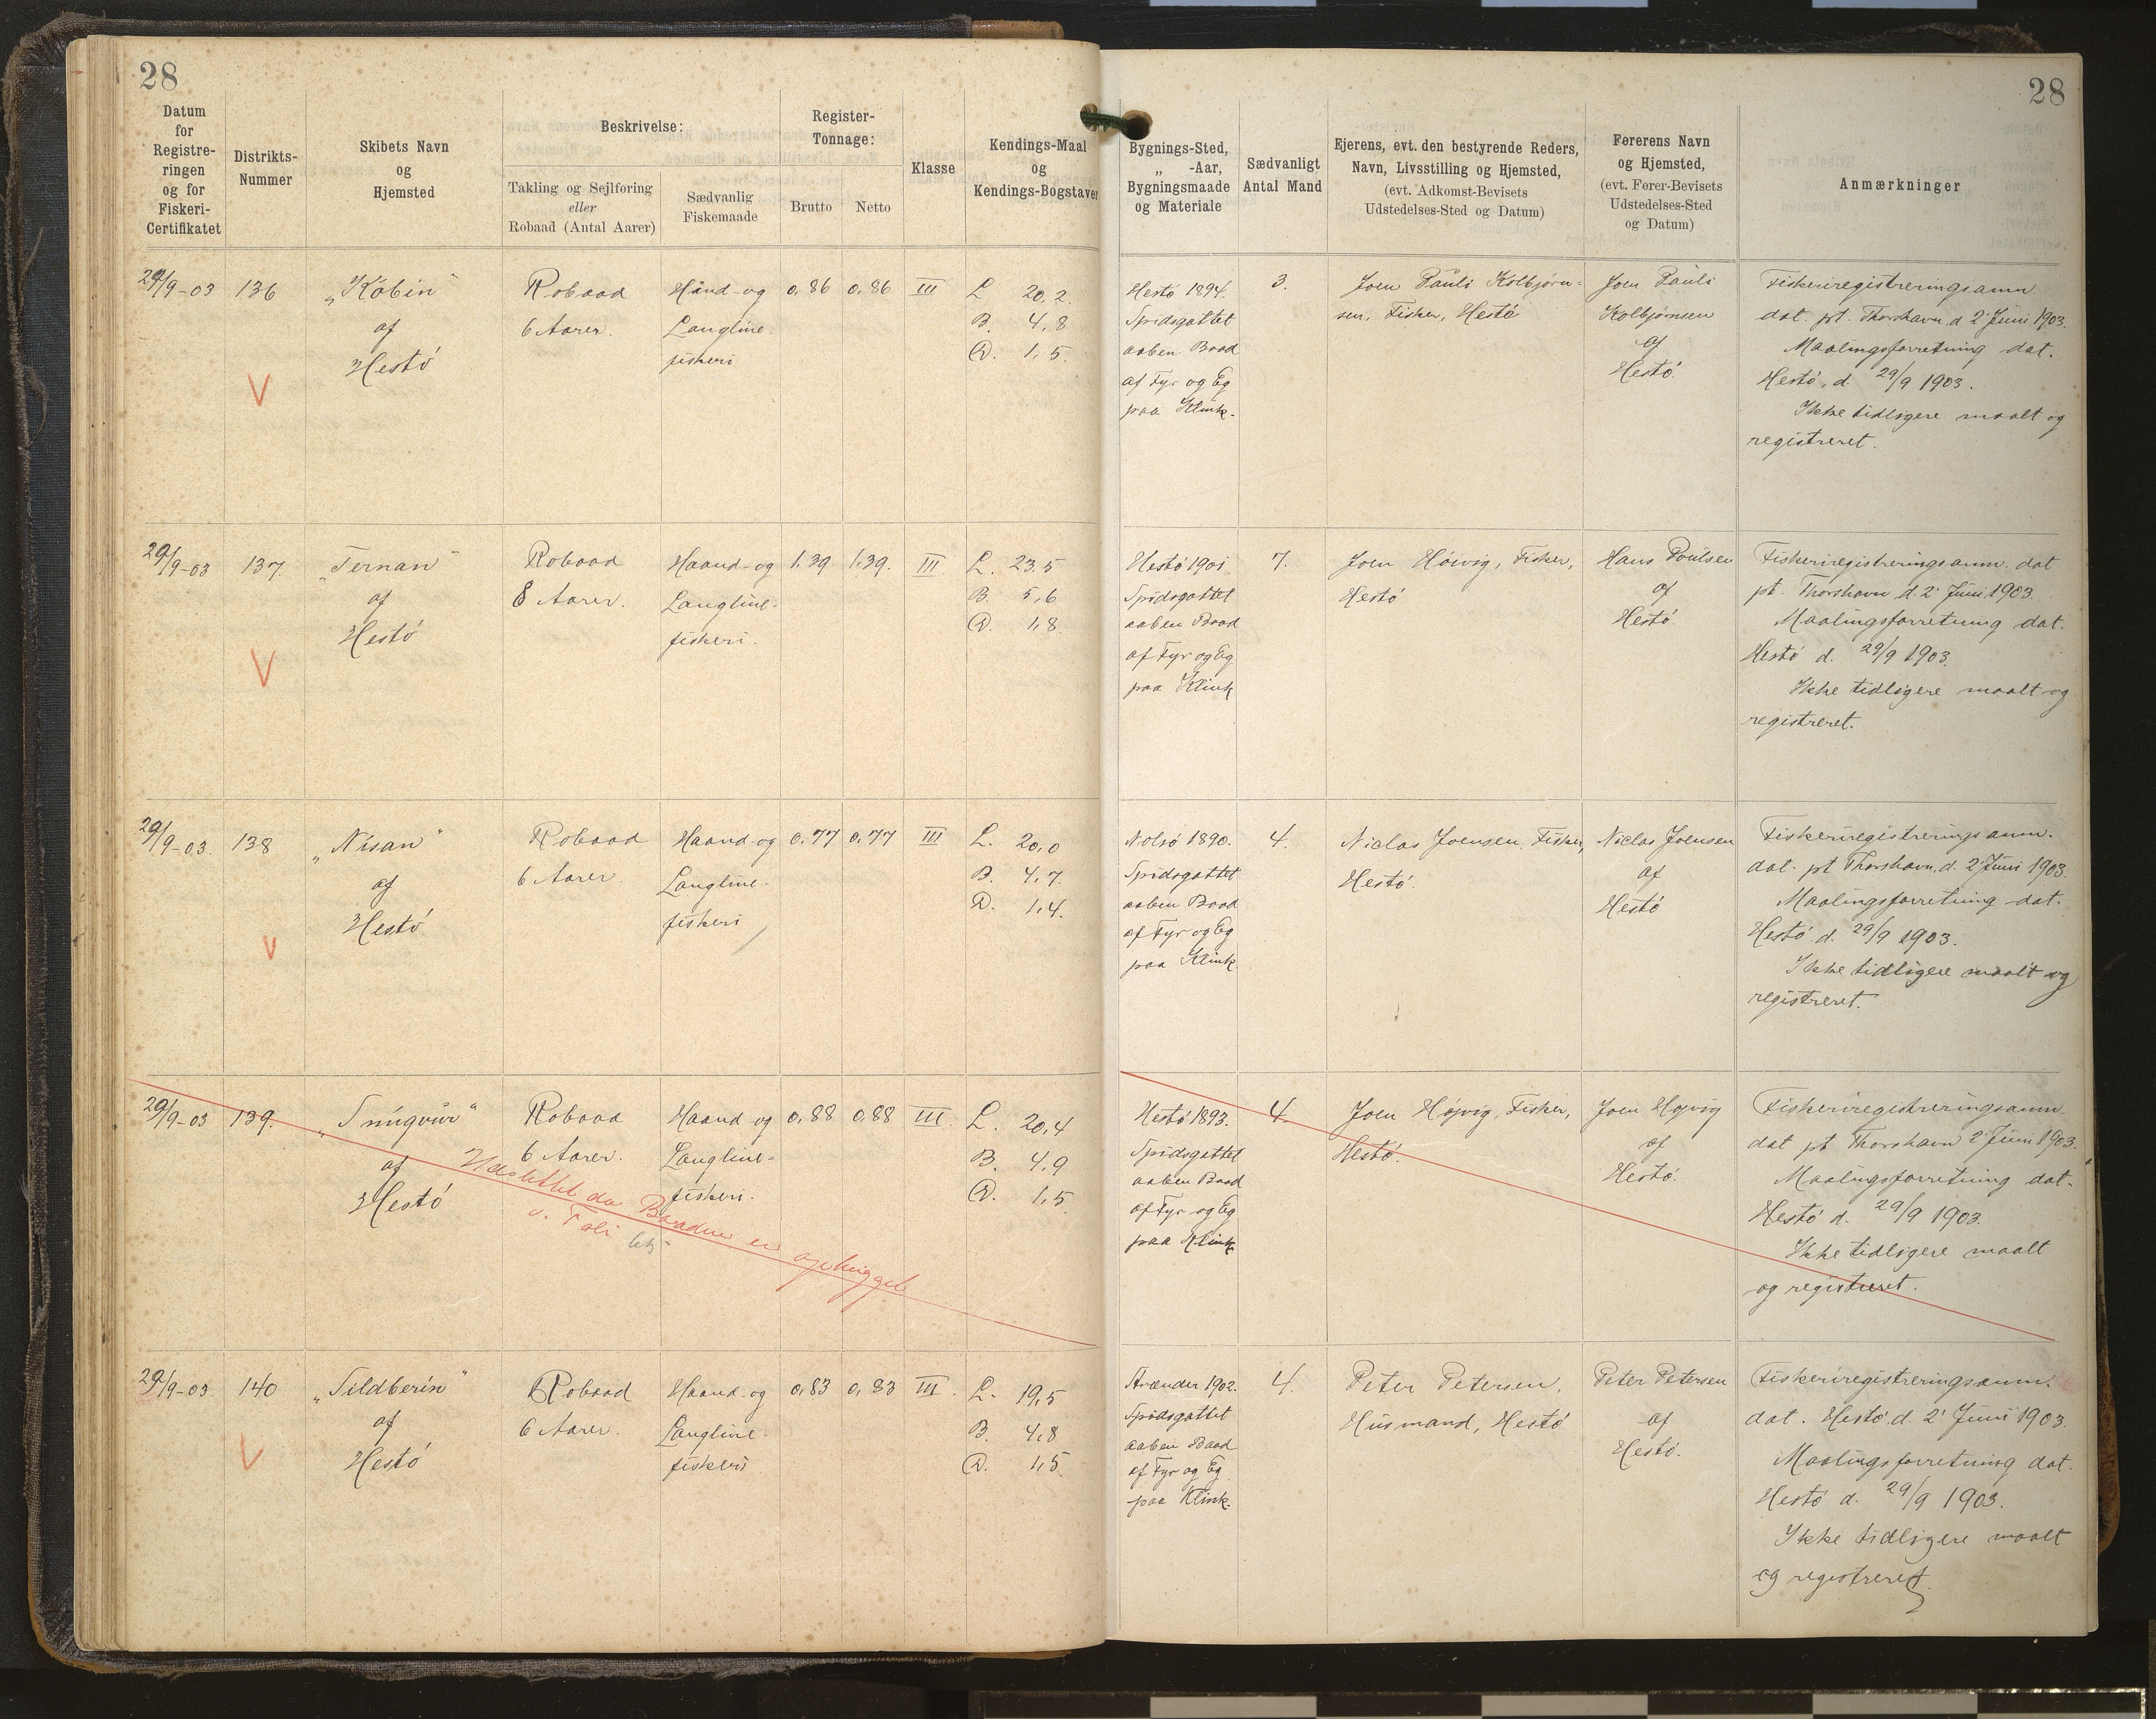 28
28
Datum
for
Registre-
ringen
og for
Fiskeri-
Certifikatet
Distrikts-
Nummer
Skibets Navn
og
Hjemsted
Beskrivelse:
Takling og Sejlføring
eller
Robaad (Antal Aarer)
Sædvanlig
Fiskemaade
Register-
Tonnage:
Brutto
Netto
Klasse
Kendings-Maal
og
Kendings-Bogstaver
Bygnings-Sted,
„ -Aar,
Bygningsmaade
og Materiale
Sædvanligt
Antal Mand
Ejerens, evt. den bestyrende Reders,
Navn, Livsstilling og Hjemsted,
(evt. Adkomst-Bevisets
Udstedelses-Sted og Datum)
Førerens Navn
og Hjemsted,
(evt. Fører-Bevisets
Udstedelses-Sted
og Datum)
Anmærkninger
29/9-03
136
„Kobin“
af
Hestö
Robaad
6 Aarer.
Haand- og
Langline-
fiskeri
0,86
0,86
III
L 20,2.
B. 4,8
D. 1,5.
Hestö 1894.
Spidsgattet
aaben Baad
af Fyr og Eg
paa Klink.
3.
Joen Pauli Kolbjørn-
sen, Fisker, Hestö
Joen Pauli
Kolbjørnsen
af
Hestö.
Fiskeriregistreringsanm.
dat. pt. Thorshavn d. 2' Juni 1903.
Maalingsforretning dat.
Hestö, d. 29/9 1903.
Ikke tidligere maalt og
registreret.
29/9-03
137
„Ternan“
af
Hestö
Robaad
8 Aarer.
Haand- og
Langline-
fiskeri.
1,39
1,39.
III
L. 23.5
B. 5,6
D. 1,8.
Hestö 1901.
Spidsgattet
aaben Baad
af Fyr og Eg
paa Klink
7.
Joen Höivig, Fisker,
Hestö
Hans Poulsen
af
Hestö.
Fiskeriregistreringsanm. dat
pt. Thorshavn d. 2' Juni 1903.
Maalingsforretning dat.
Hestö d. 29/9 1903.
Ikke tidligere maalt og
registreret.
29/9-03.
138
„Nisan“
af
Hestö
Robaad
6 Aarer.
Haand- og
Langline-
fiskeri
0,77
0,77
III
L. 20,0
B. 4,7.
D. 1,4.
Nolsö 1890.
Spidsgattet
aaben Baad
af Fyr og Eg
paa Klink.
4.
Niclas Joensen, Fisker,
Hestö.
Niclas Joensen
af
Hestö
Fiskeriregistreringsanm.
dat. pt Thorshavn, d. 2' Juni 1903.
Maalingsforretning dat.
Hestö d. 29/9 1903.
Ikke tidligere maalt og
registreret.
29/9-03
139.
af
Hestö
Robaad
6 Aarer.
Haand og
Langline-
fiskeri.
0,88
0,88
III.
L. 20,4
B. 4,9
D. 1,5.
Udslettet da Baaden er ophugget
Hestö 1893.
Spidsgattet
aaben Baad
af Fyr og Eg
paa Klink
4.
Joen Höjvig, Fisker,
Hestö.
Joen Höjvig
af
Hestö.
Fiskeriregistreringsanm
dat pt Thorshavn 2' Juni 1903.
Maalingsforretning dat.
Hestö d. 29/9 1903.
Ikke tidligere maalt
og registreret.
29/9-03.
140
„Sildberin“
af
Hestö
Robaad
6 Aarer.
Haand- og
Langline-
fiskeri
0,83
0,83
III.
L. 19,5
B. 4,8
D. 1,5.
Strænder 1902.
Spidsgattet
aaben Baad
af Fyr og Eg
paa Klink.
4.
Peter Petersen,
Husmand, Hestö
Peter Petersen
af
Hestö.
Fiskeriregistreringsanm.
dat. Hestö d. 2' Juni 1903.
Maalingsforretning dat.
Hestö d. 29/9 1903.
Ikke tidligere maalt
og registreret.